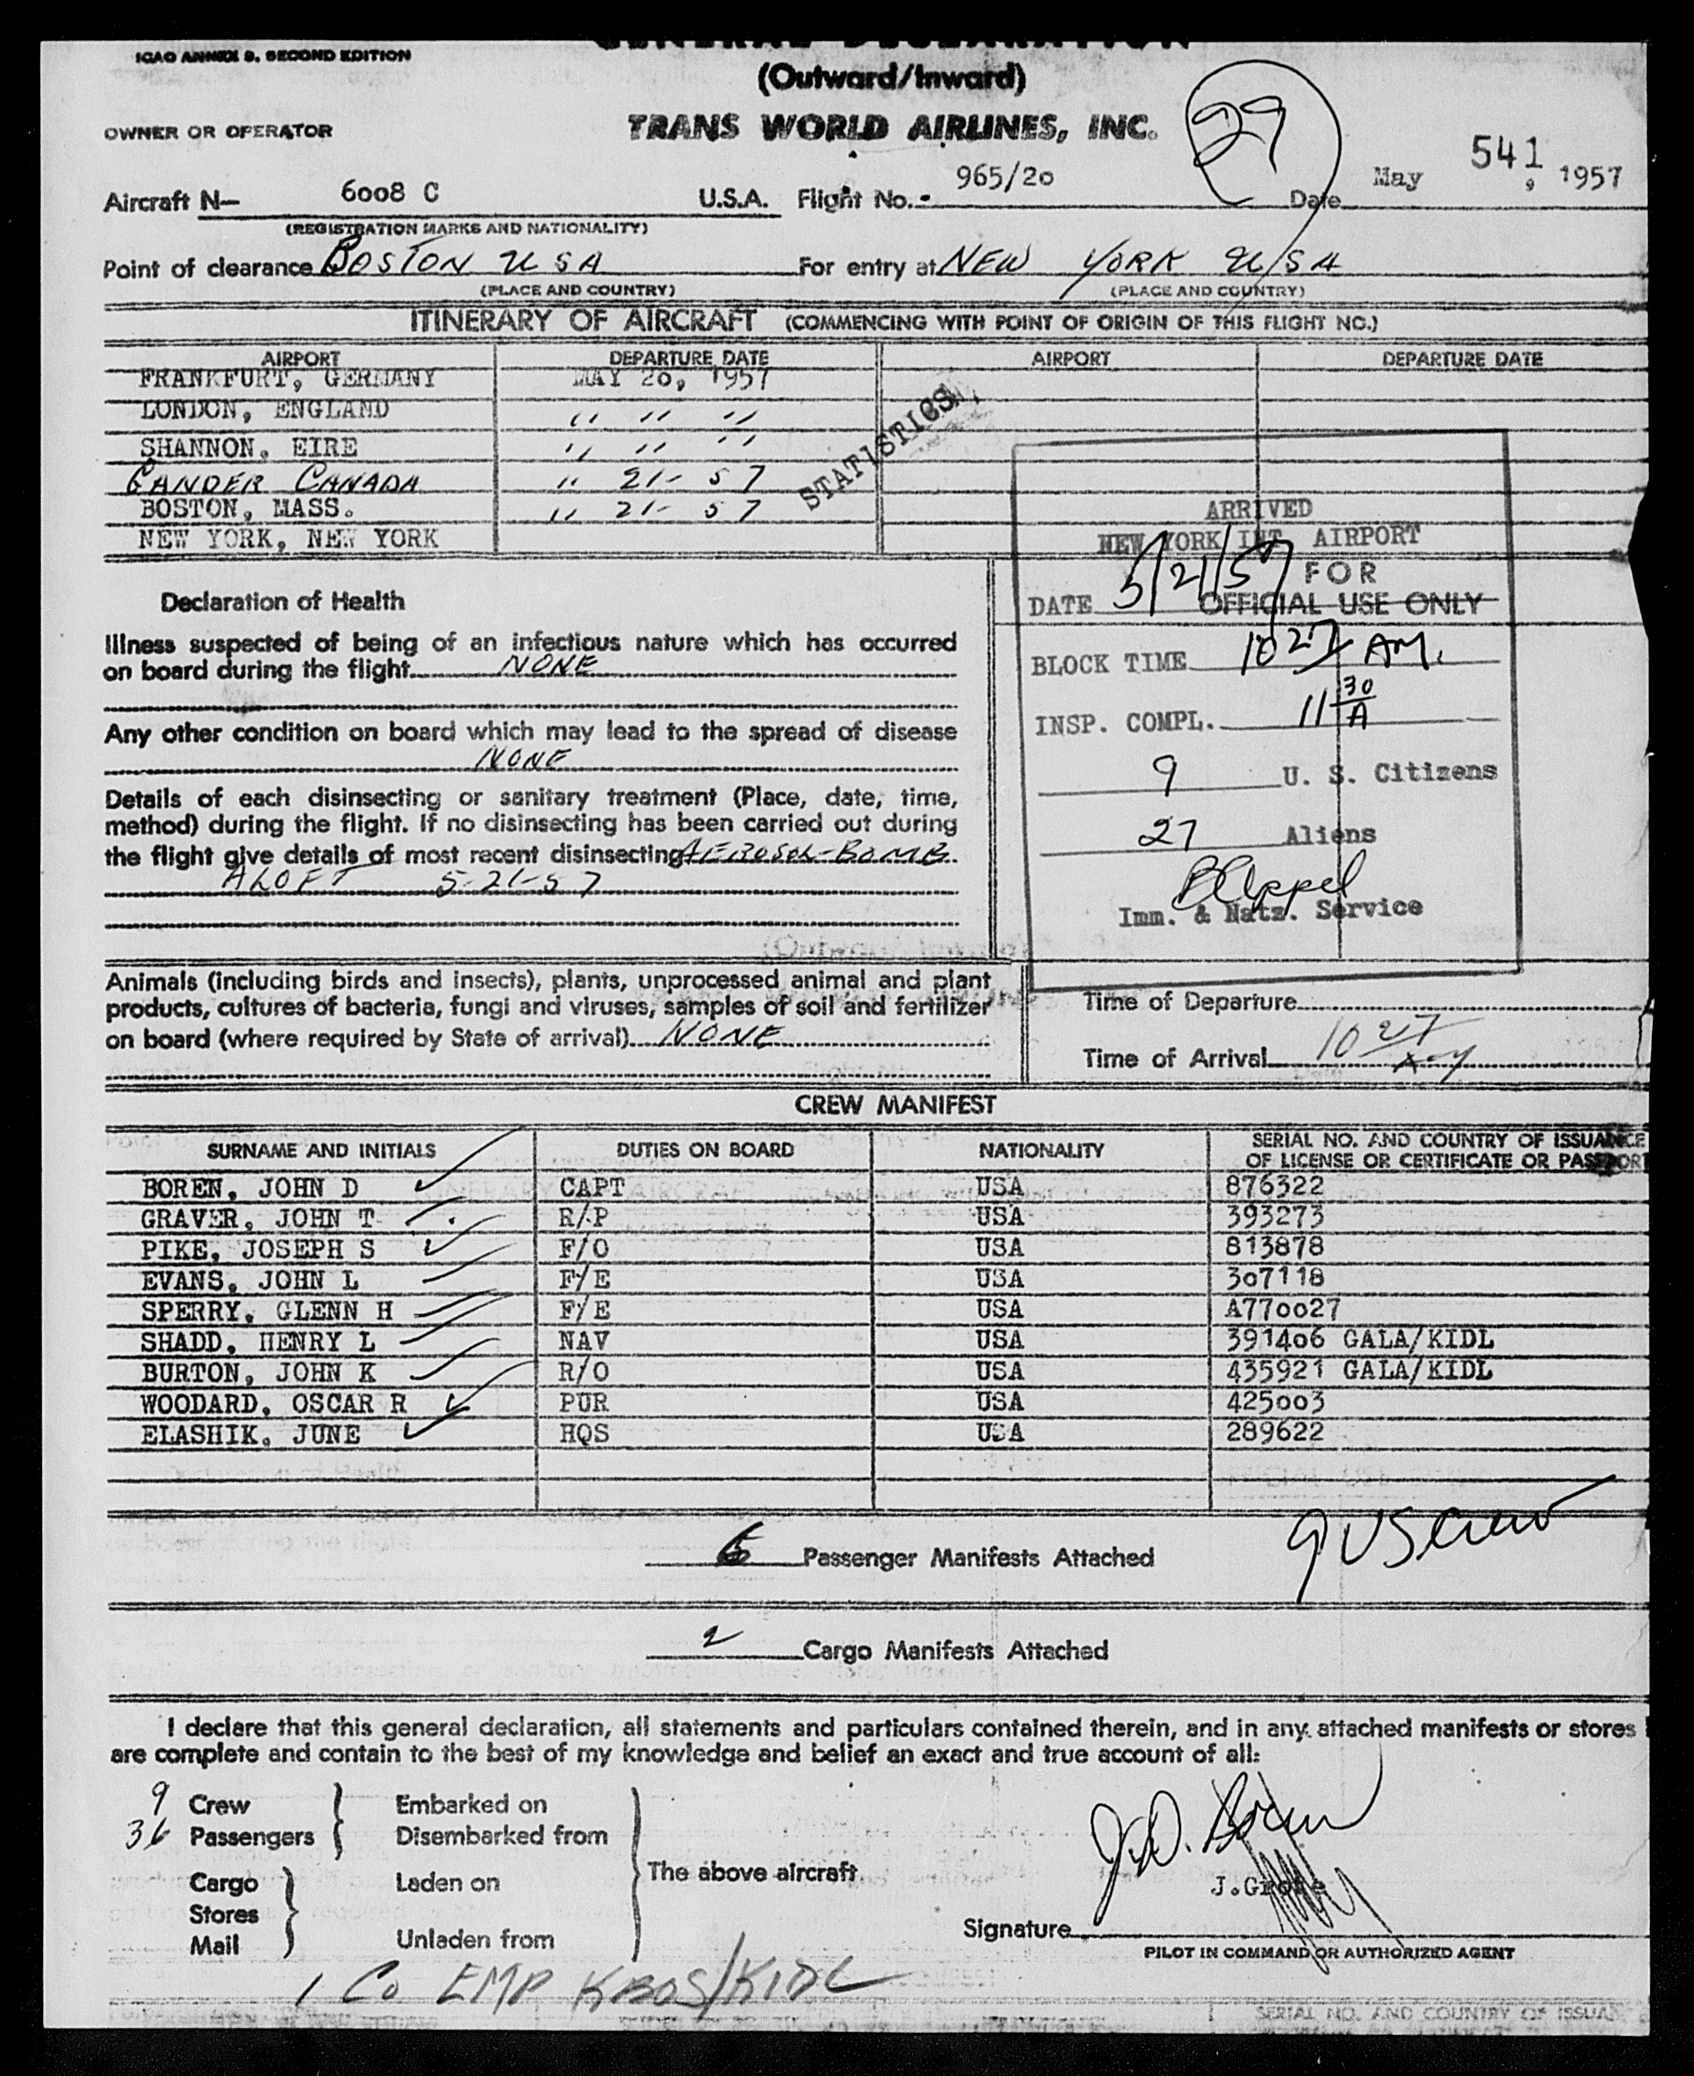 ICAO ANNEX 9, SECOND EDITION
GENERAL DECLARATION
(Outward/Inward)
OWNER OR OPERATOR
TRANS WORLD AIRLINES, INC.
29
541
Aircraft N— 6008 C U.S.A. Flight No. 965/20 Date May , 1957
(REGISTRATION MARKS AND NATIONALITY)
Point of clearance BOSTON USA For entry at NEW YORK USA
(PLACE AND COUNTRY) (PLACE AND COUNTRY)
ITINERARY OF AIRCRAFT (COMMENCING WITH POINT OF ORIGIN OF THIS FLIGHT NO.)
AIRPORT DEPARTURE DATE AIRPORT DEPARTURE DATE
FRANKFURT, GERMANY MAY 20, 1957
LONDON, ENGLAND " " "
SHANNON, EIRE " " "
GANDER CANADA " 21- 57
BOSTON, MASS. " 21- 57
NEW YORK, NEW YORK
STATISTICS
ARRIVED
NEW YORK INT. AIRPORT
FOR
OFFICIAL USE ONLY
DATE 5/21/57
BLOCK TIME 10 27 AM.
INSP. COMPL. 11 30 A
9 U. S. Citizens
27 Aliens
Imm. & Natz. Service
Declaration of Health
Illness suspected of being of an infectious nature which has occurred
on board during the flight NONE
Any other condition on board which may lead to the spread of disease
NONE
Details of each disinsecting or sanitary treatment (Place, date, time,
method) during the flight. If no disinsecting has been carried out during
the flight give details of most recent disinsecting AEROSOL-BOMB
ALOFT 5-21-57
Animals (including birds and insects), plants, unprocessed animal and plant
products, cultures of bacteria, fungi and viruses, samples of soil and fertilizer
on board (where required by State of arrival) NONE
Time of Departure
Time of Arrival 10 27
CREW MANIFEST
SURNAME AND INITIALS DUTIES ON BOARD NATIONALITY SERIAL NO. AND COUNTRY OF ISSUANCE
OF LICENSE OR CERTIFICATE OR PASSPORT
BOREN, JOHN D CAPT USA 876322
GRAVER, JOHN T R/P USA 393273
PIKE, JOSEPH S F/O USA 813878
EVANS, JOHN L F/E USA 307118
SPERRY, GLENN H F/E USA A770027
SHADD, HENRY L NAV USA 391406 GALA/KIDL
BURTON, JOHN K R/O USA 435921 GALA/KIDL
WOODARD, OSCAR R PUR USA 425003
ELASHIK, JUNE HQS USA 289622
9 US Crew
6 Passenger Manifests Attached
2 Cargo Manifests Attached
I declare that this general declaration, all statements and particulars contained therein, and in any attached manifests or stores
are complete and contain to the best of my knowledge and belief an exact and true account of all:
9 Crew Embarked on
36 Passengers Disembarked from
The above aircraft
Cargo Laden on
Stores
Mail Unladen from
J.D. Boren
Signature
PILOT IN COMMAND OR AUTHORIZED AGENT
1 Co EMP KBOS/KIDL
SERIAL NO. AND COUNTRY OF ISSUA